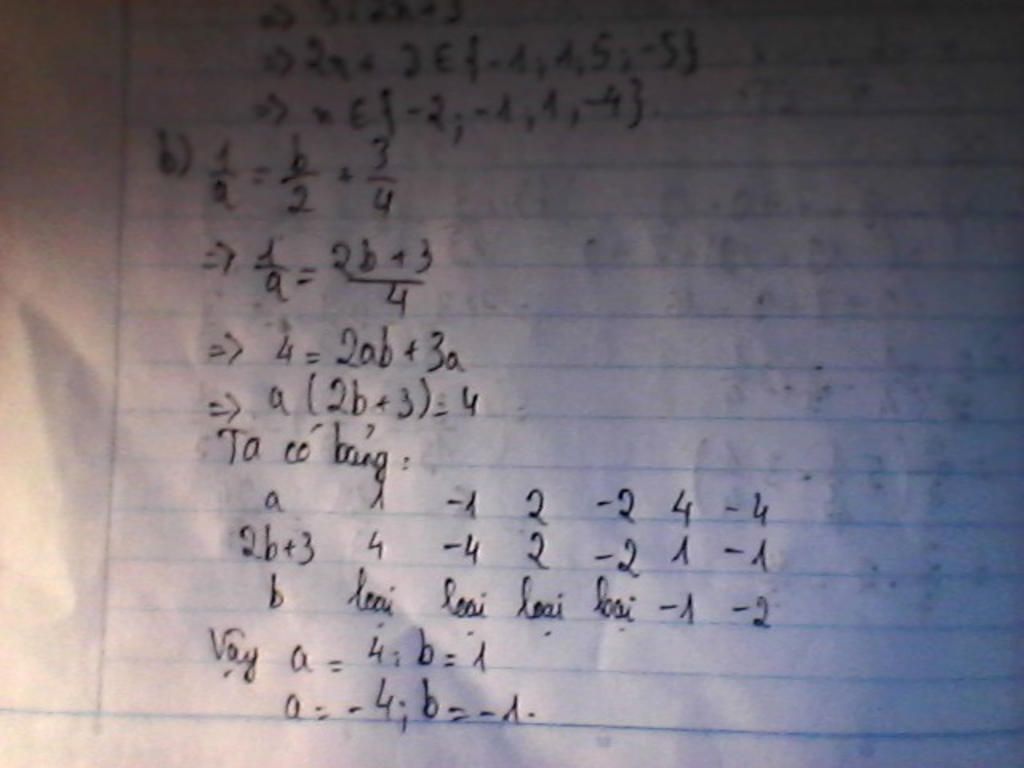 => 2n + 3 ∈ {-1, 1, 5; -5}
=> n ∈ {-2; -1, 1, -4}.
b) 1/a = b/2 + 3/4
=> 1/a = (2b + 3)/4
=> 4 = 2ab + 3a
=> a (2b + 3) = 4
Ta có bảng:
a 1 -1 2 -2 4 -4
2b+3 4 -4 2 -2 1 -1
b loại loại loại loại -1 -2
Vậy a = 4; b = 1
a = -4; b = -1.